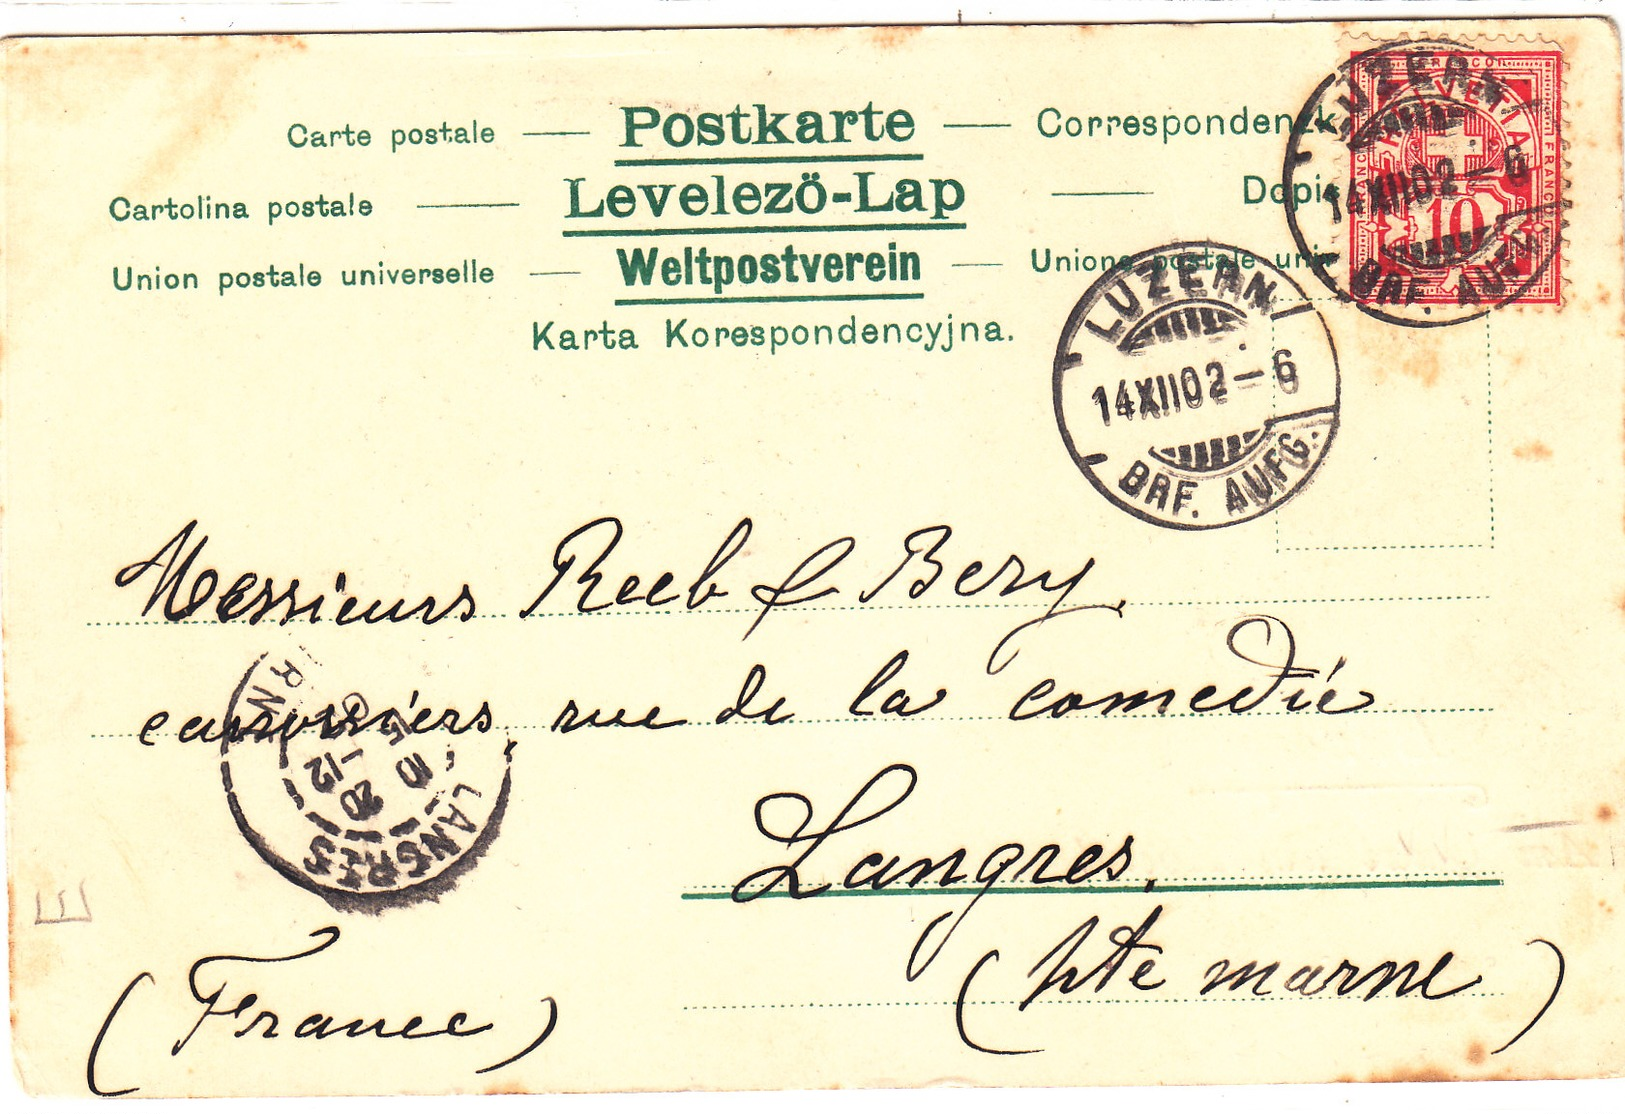 Carte postale — Postkarte — Correspondenzk
Cartolina postale — Levelező-Lap — Dopis
Union postale universelle — Weltpostverein — Unione postale univ
Karta Korespondencyjna.
FRANCO HELVETIA FRANCO
10
LUZERN
14XII02-6
BRF. AUFG.
LUZERN
14XII02-6
BRF. AUFG.
Messieurs Reeb & Bery.
carrossiers, rue de la comedie
Langres.
(hte marne)
(France)
LANGRES
10
20
-12
E